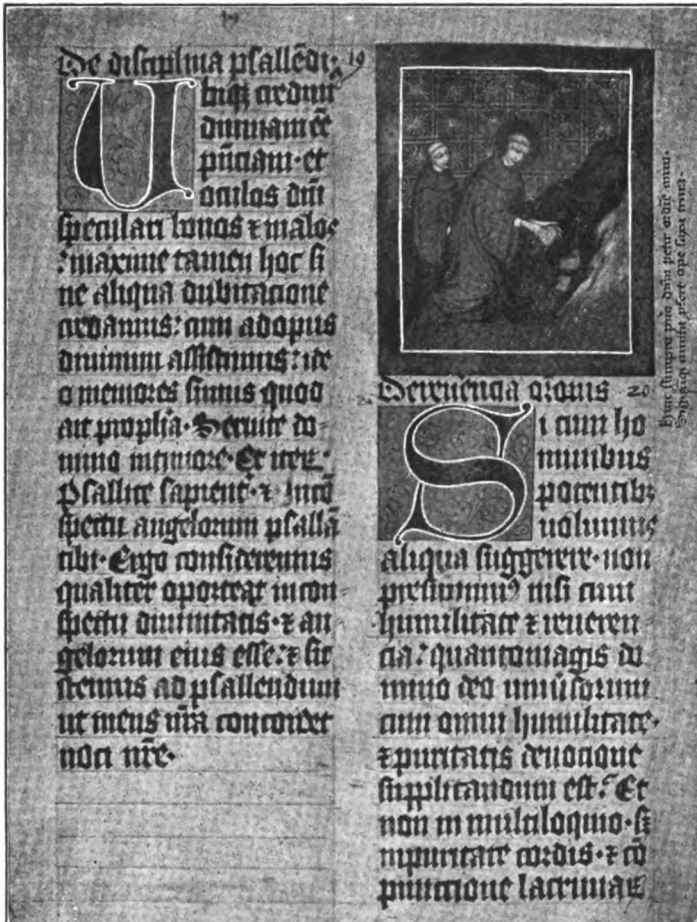 De disciplina psallēdi· 19
Ubiq credim⁹
diuinam eē
pn̄ciam· et
oculos dn̄i
speculari bonos ⁊ malos
maxime tamen hoc si
ne aliqua dubitacione
credamus: cum ad opus
diuinum assistimus: ide
o memores simus quod
ait propħa· Seruite do-
mino in timore· Et
Psallite sapient̄· ⁊ In cō
spectu angelorum psallā
tibi· Ergo consideremus
qualiter oporteat in con-
spectu diuinitatis· ⁊ an
gelorum eius esse: ⁊ sic
stemus ad psallendum
ut mens nr̄a concordet
uoci nr̄e·
De reuencia oronis 20
Si cum ho
minibus
potentib⁊
uolumus
aliqua suggerere· non
presumim⁹ nisi cum
humilitate ⁊ reueren
cia: quantomagis do
mino deo uniūsorum
cum omni humilitate·
⁊ puritatis deuocione
supplicandum est: Et
non in multiloquio· sʒ
in puritate cordis· ⁊ cō
punctione lacrimaꝝ